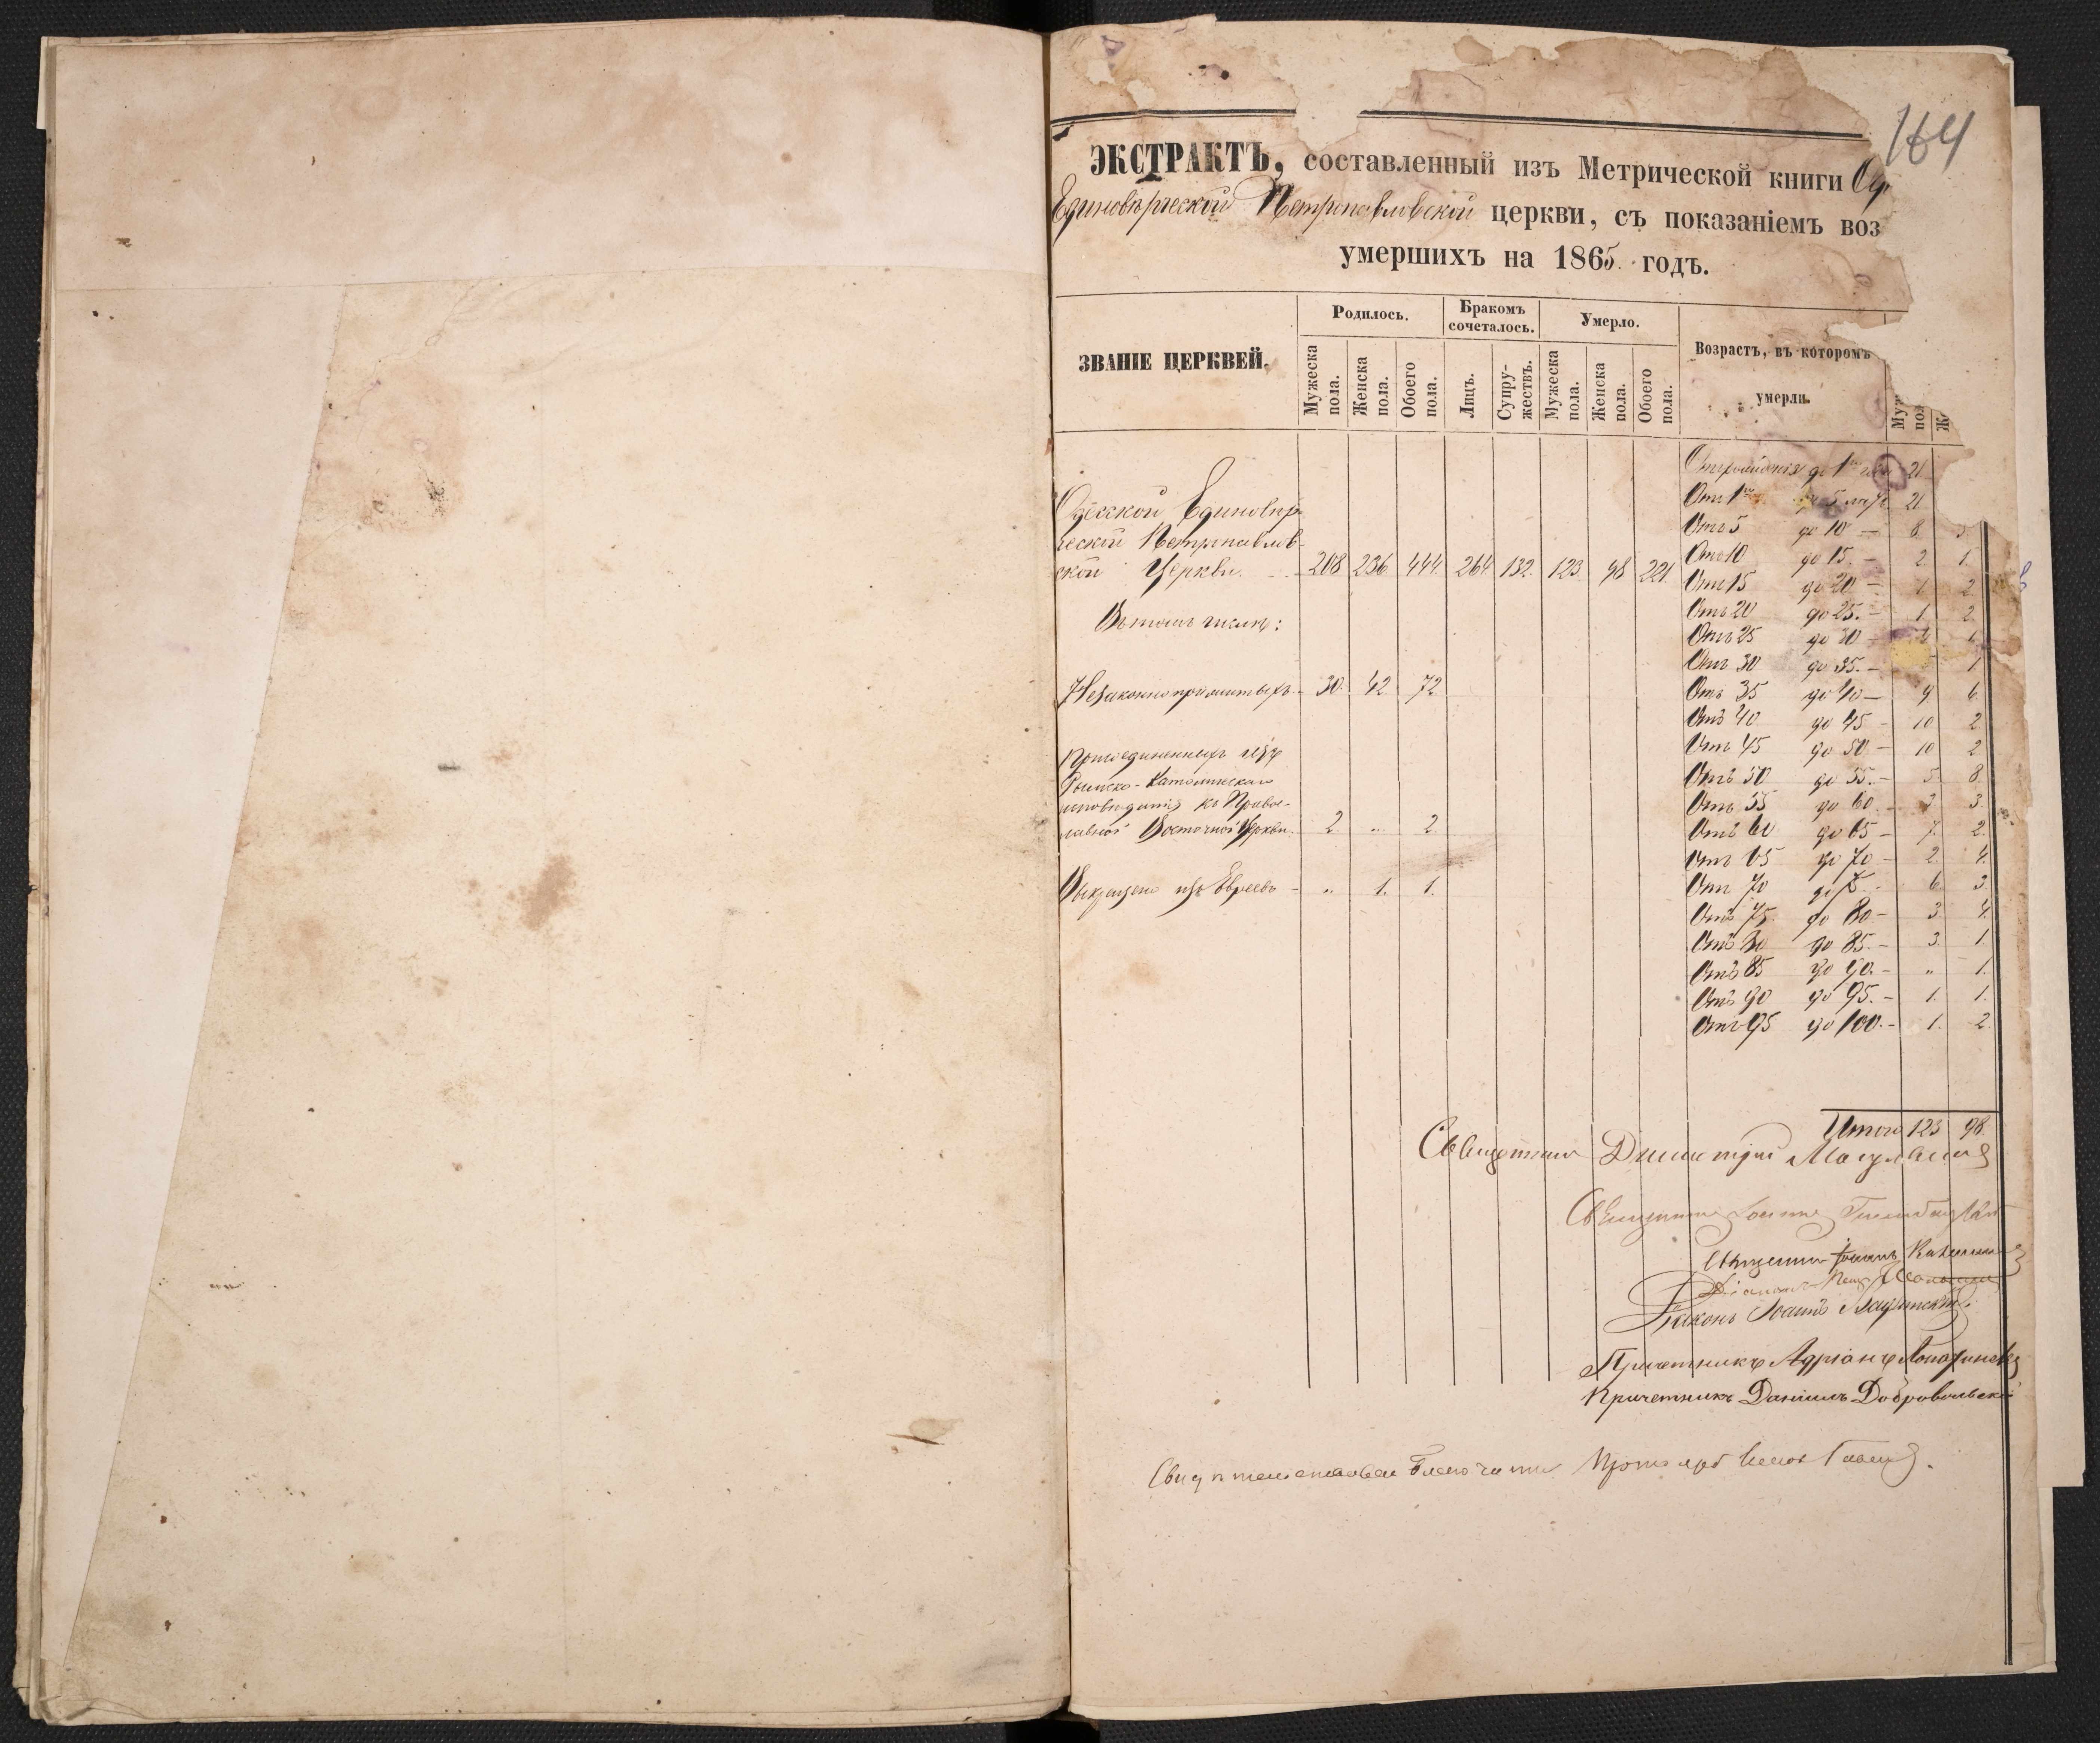 164
ЭКСТРАКТЪ, составленный изъ Метрической книги
Единовѣрческой Петропавловской церкви, съ показаніемъ воз
умершихъ на 1865 годъ.
ЗВАНІЕ ЦЕРКВЕЙ.
Родилось.
Бракомъ сочеталось.
Умерло.
Возрастъ, въ которомъ
умерли.
Мужеска пола.
Женска пола.
Обоего пола.
Лицъ.
Супру-жествъ.
Мужеска пола.
Женска пола.
Обоего пола.
Одесской Единовѣр-
ческой Петропавлов-
ской Церкви. 208 236 444. 264 132. 123. 98 221.
Въ томъ числѣ:
Незаконноприжитыхъ 30. 42 72
Присоединенныхъ изъ
Римско-Католическаго
исповѣданія къ Право-
славной Восточной Церкви. 2. „ 2.
Выкрещено изъ Евреевъ „ 1. 1.
Отъ рожденія до 1го 21
Отъ 1го до 5 21
Отъ 5 до 10 — 8
Отъ 10 до 15. — 2 1.
Отъ 15 до 20 — 1 2
Отъ 20 до 25. — 1 2
Отъ 25 до 30 —
Отъ 30 до 35. — 1
Отъ 35 до 40 — 9 6
Отъ 40 до 45 — 10 2
Отъ 45 до 50 — 10 2
Отъ 50 до 55. — 5. 8
Отъ 55 до 60. — 3.
Отъ 60 до 65 — 7. 2.
Отъ 65 до 70 — 2. 4.
Отъ 70 до 75. 6 3.
Отъ 75. до 80 — 3. 4.
Отъ 80 до 85. — 3. 1.
Отъ 85 до 90. — „ 1.
Отъ 90 до 95. — 1. 1.
Отъ 95 до 100. — 1. 2.
Итого 123 98.
Священникъ Димитрій
Священникъ Іоаннъ
Священникъ Іоаннъ
Діаконъ Петръ
Діаконъ Іоаннъ
Причетникъ Адріанъ
Причетникъ Даніилъ Добровольскій
Свидѣтельствовалъ Благочинный